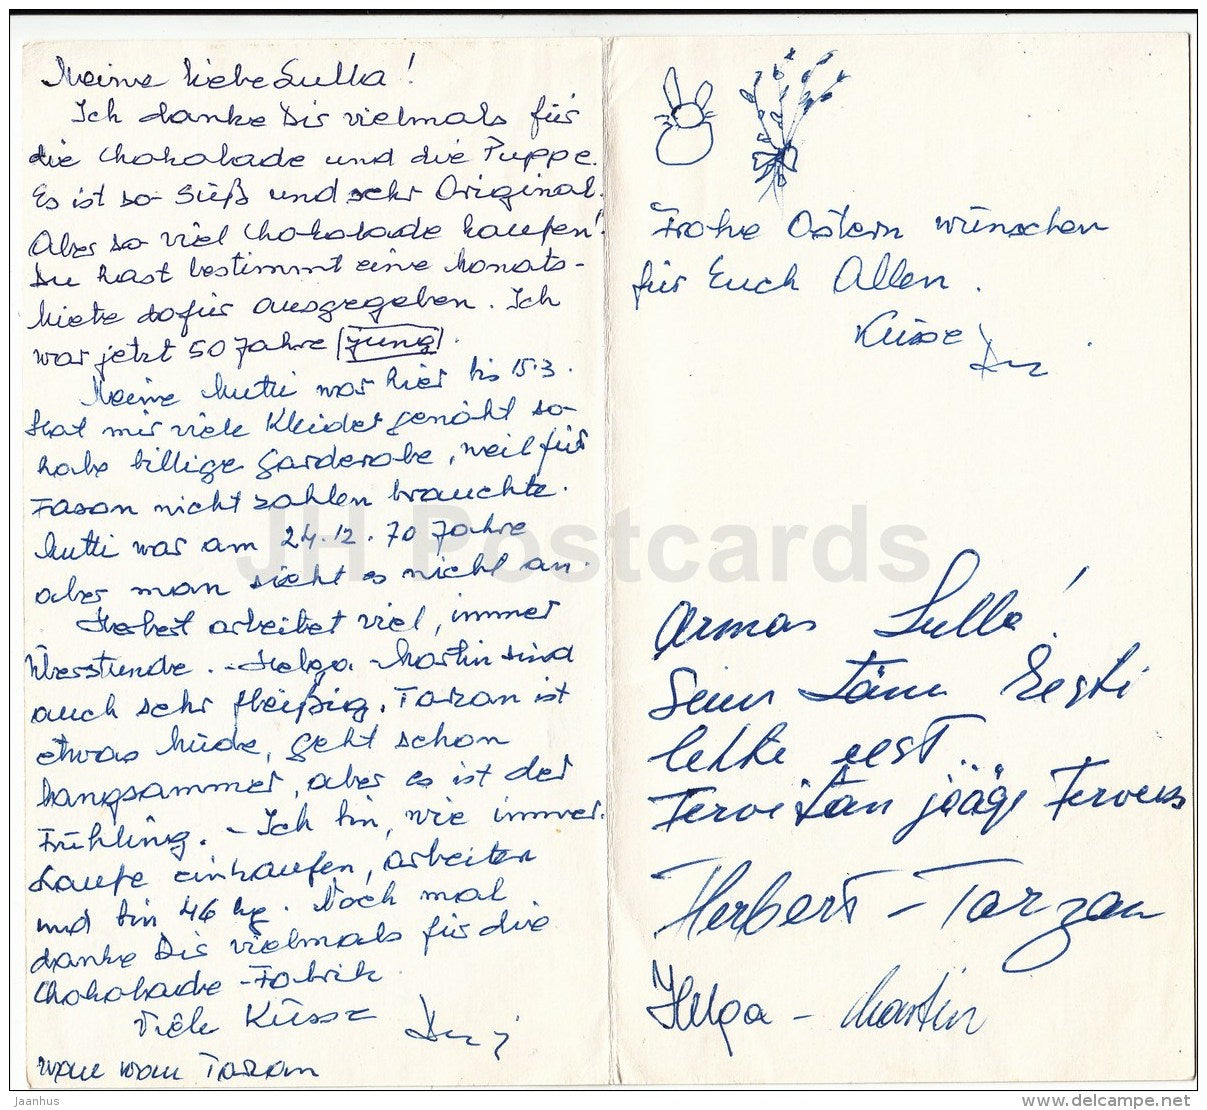 Meine liebe Sulla!
Ich danke Dir vielmals für
die Chokolade und die Puppe.
Es ist so süß und sehr Original.
Aber so viel Chokolade kaufen!
Du hast bestimmt eine Monats-
miete dafür ausgegeben. Ich
war jetzt 50 Jahre jung.
Meine Mutti war hier bis 15.3.
Hat mir viele Kleider genäht so
habe billige Garderobe, weil für
Fason nicht zahlen brauchte.
Mutti war am 24.12. 70 Jahre
aber man sieht es nicht an.
Herbert arbeitet viel, immer
Überstunde. - Helga - Martin sind
auch sehr fleißig. Tarzan ist
etwas müde, geht schon
langsammer, aber es ist der
Frühling. - Ich bin, wie immer.
Laufe einkaufen, arbeiten
und bin 46 kg. Noch mal
danke Dir vielmals für die
Chokolade - Fabrik.
Viele Küsse
wau wau Tarzan
Frohe Ostern wünschen
für Euch Allen.
Küsse
Armas Sulla!
Suur tänu Eesti
lehte eest...
Tervitan jääge Terveks
Herbert - Tarzan
Helga - Martin
JH Postcards
Jaanhus
www.delcampe.net